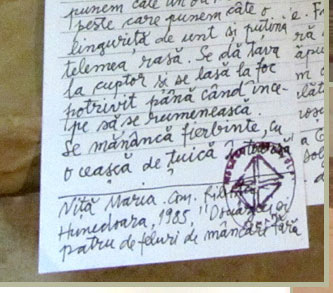 punem câte un ou
peste care punem câte o
linguriță de unt și puțină
telemea rasă. Se dă tava
la cuptor și se lasă la foc
potrivit până când înce-
pe să se rumenească.
Se mănâncă fierbinte, cu
o ceașcă de țuică
Niță Maria. Com.
Hunedoara, 1985, "Douăzeci și
patru de feluri de mâncări fără